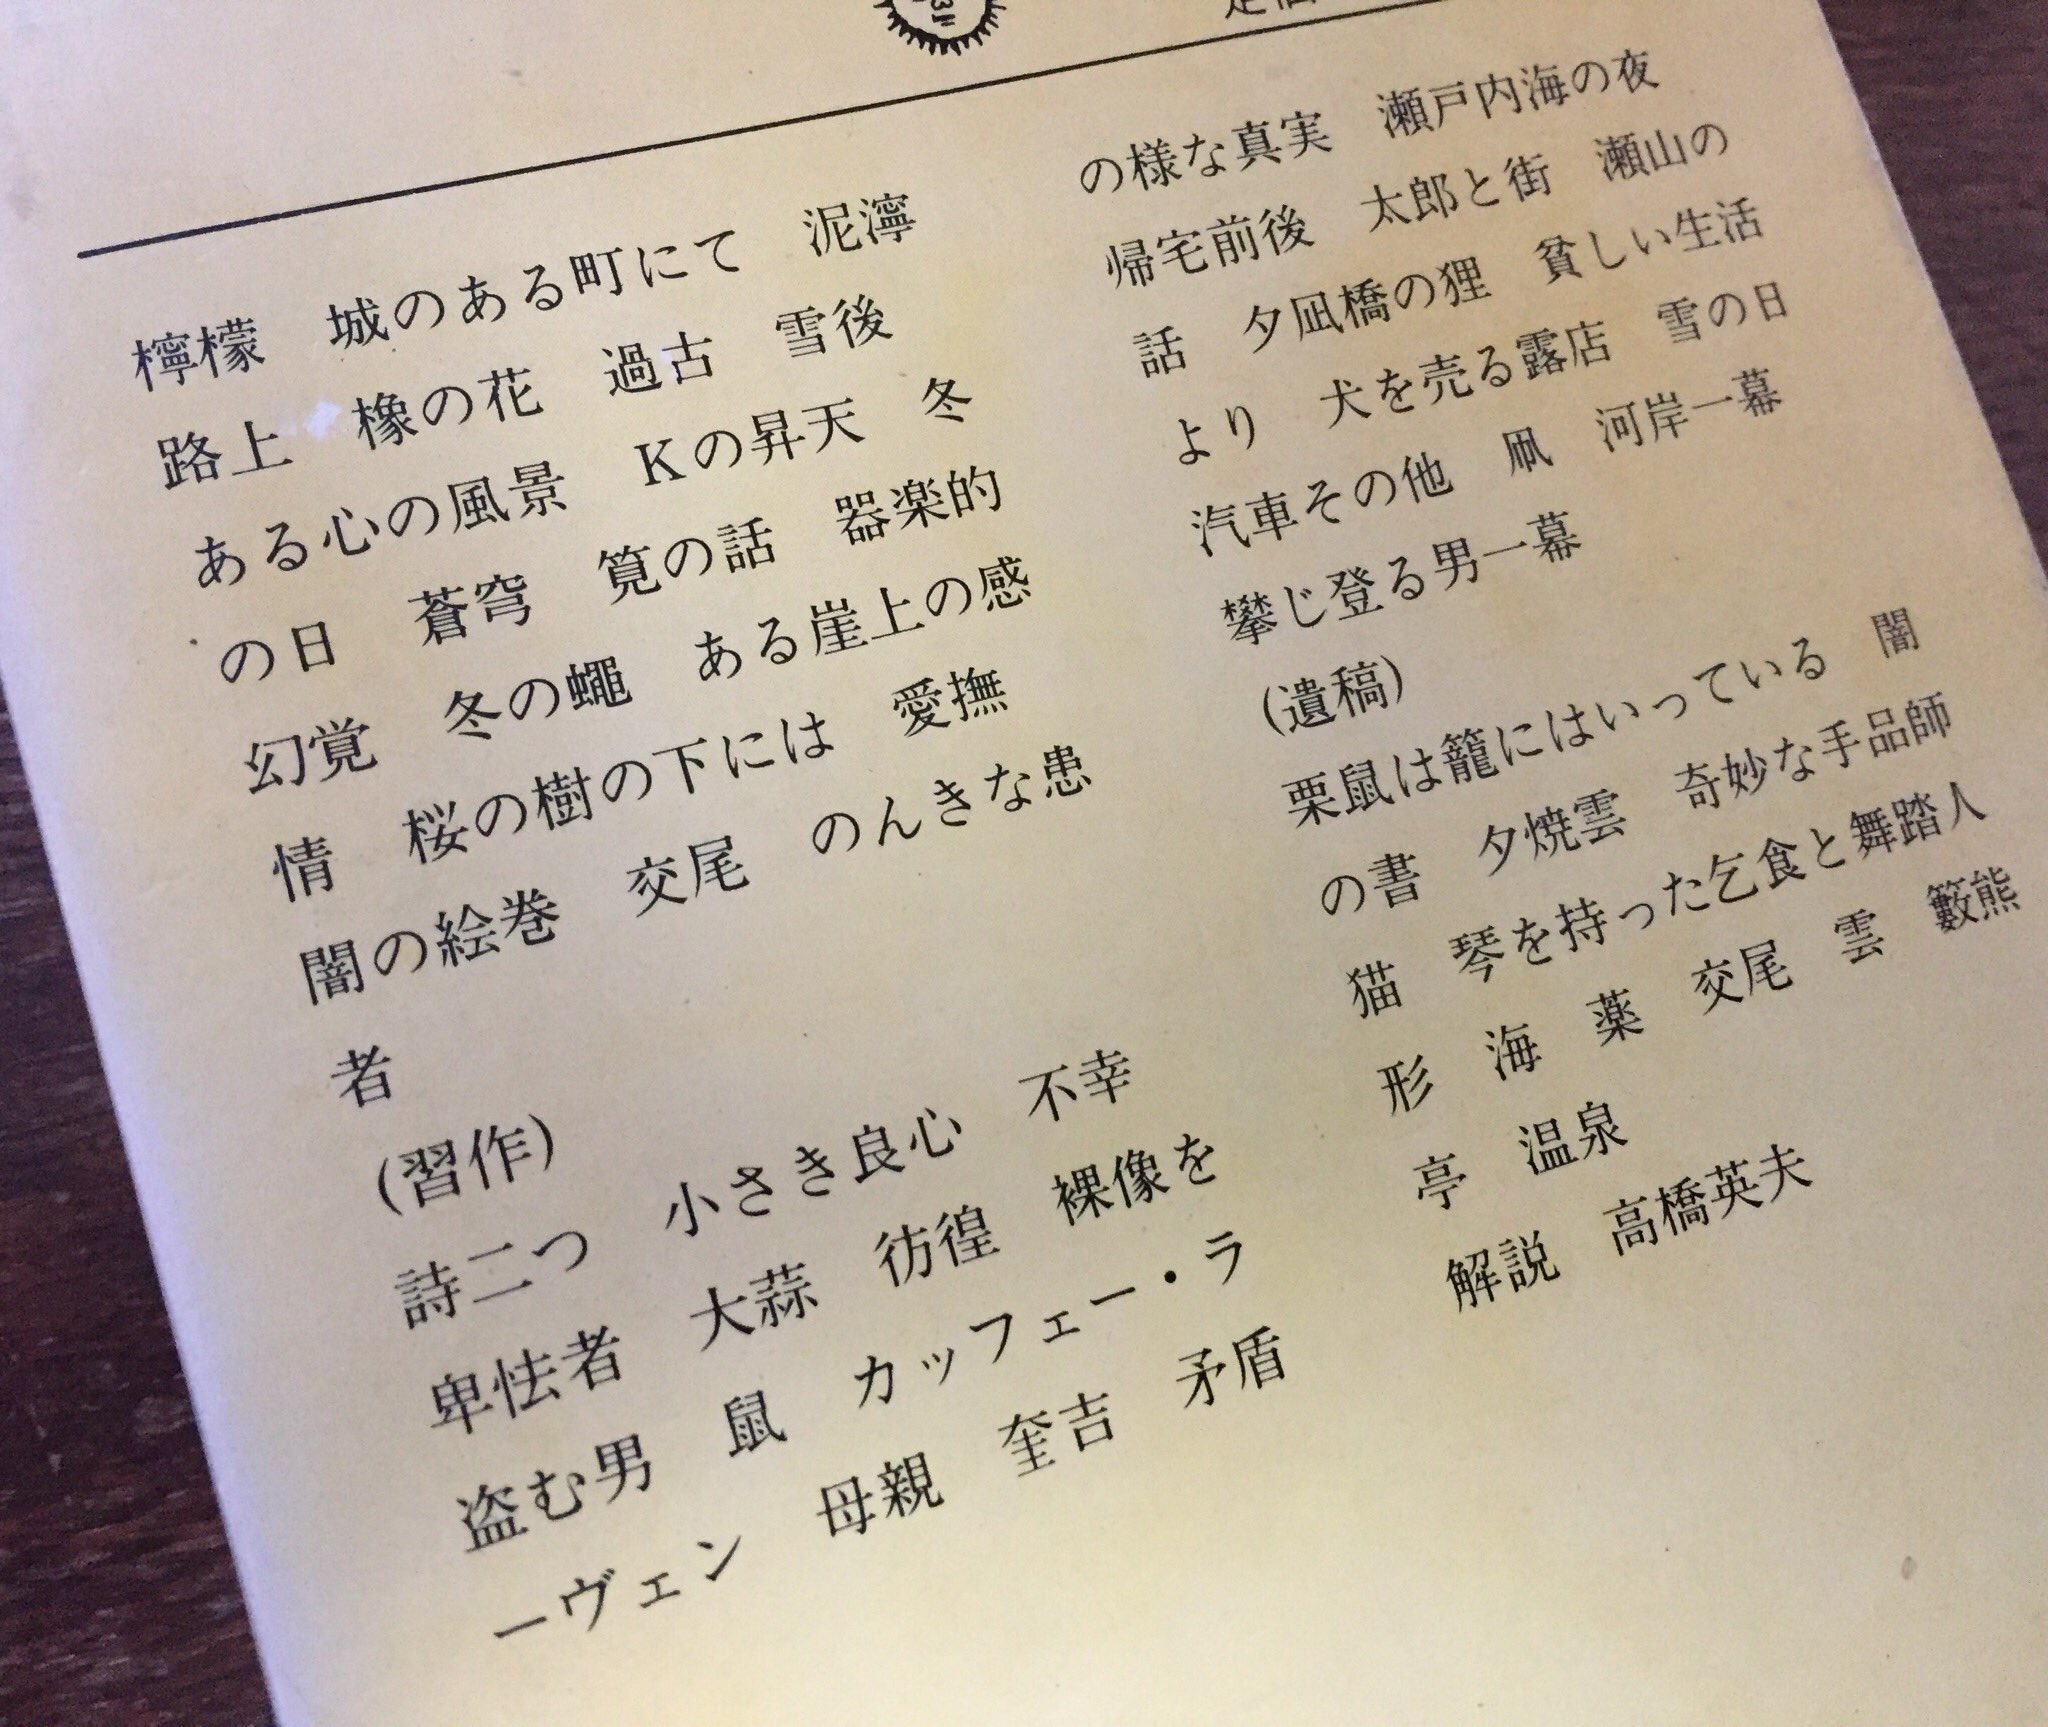 檸檬　城のある町にて　泥濘
路上　橡の花　過古　雪後
ある心の風景　Kの昇天　冬
の日　蒼穹　筧の話　器楽的
幻覚　冬の蠅　ある崖上の感
情　桜の樹の下には　愛撫
闇の絵巻　交尾　のんきな患
者
(習作)
詩二つ　小さき良心　不幸
卑怯者　大蒜　彷徨　裸像を
盗む男　鼠　カッフェー・ラ
ーヴェン　母親　奎吉　矛盾
の様な真実　瀬戸内海の夜
帰宅前後　太郎と街　瀬山の
話　夕凪橋の狸　貧しい生活
より　犬を売る露店　雪の日
汽車その他　凧　河岸一幕
攀じ登る男一幕
(遺稿)
栗鼠は籠にはいっている　闇
の書　夕焼雲　奇妙な手品師
猫　琴を持った乞食と舞踏人
形　海　薬　交尾　雲　籔熊
亭　温泉
解説　高橋英夫